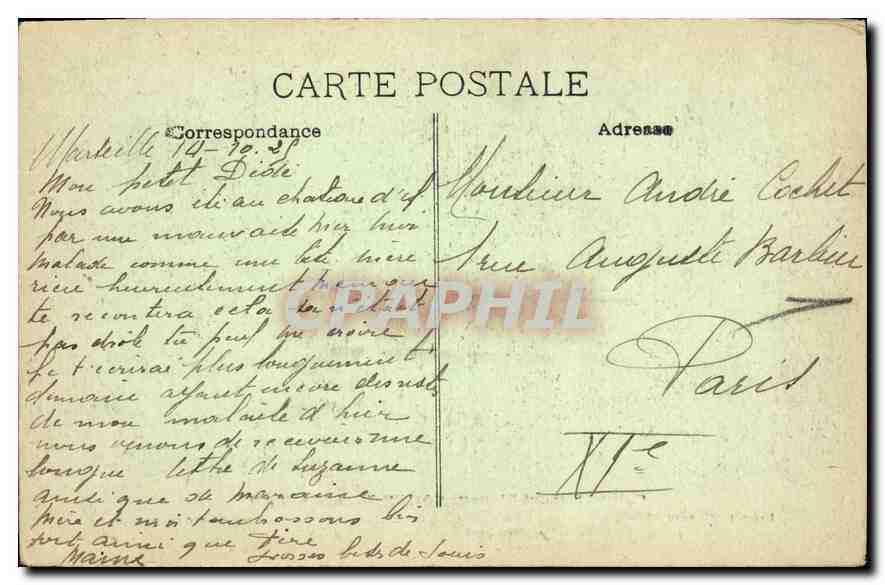 CARTE POSTALE
Correspondance
Adresse
Marseille 14-10.25
Mon petit Dédé
Nous avons été au chateau d'if
par une mauvaise mer moi
malade comme une bête mère
rien heureusement
te recontera cela
pas drôle tu peut me croire
je t'écrirai plus longuement
demain ayant encore des restes
de mon malaise d'hier
nous venons de recevoir une
longue lettre de Suzanne
ainsi que de marraine.
Mère et moi t'embrassons bis
fort ainsi que Père
Grosses bises de Louis
Monsieur André Cochet
1 rue Auguste Barbier
Paris
XIe
CPAPHIL